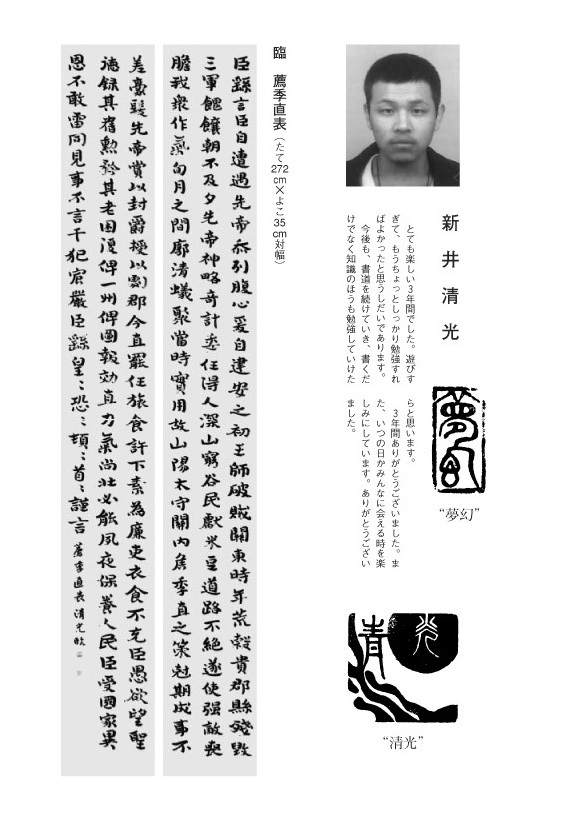 新井清光
とても楽しい3年間でした。遊びす
ぎて、もうちょっとしっかり勉強すれ
ばよかったと思うしだいであります。
今後も、書道を続けていき、書くだ
けでなく知識のほうも勉強していけた
らと思います。
3年間ありがとうございました。ま
た、いつの日かみんなに会える時を楽
しみにしています。ありがとうござい
ました。
夢幻
“夢幻”
光
青
“清光”
臨 薦季直表（たて272cm×よこ35cm対幅）
臣繇言臣自遭遇先帝忝列腹心爰自建安之初王師破賊關東時年荒穀貴郡縣殘毀
三軍餽饟朝不及夕先帝神略奇計委任得人深山窮谷民獻米豆道路不絶遂使强敵喪
膽我衆作氣旬月之間廓清蟻聚當時實用故山陽太守關內侯季直之策尅期成事不
差豪髮先帝賞以封爵授以劇郡今直罷任旅食許下素爲廉吏衣食不充臣愚欲望聖
德録其舊勳矜其老困復俾一州俾圖報效直力氣尚壯必能夙夜保養人民臣受國家異
恩不敢雷同見事不言干犯宸嚴臣繇皇〻恐〻頓〻首〻謹言 薦季直表 清光臨